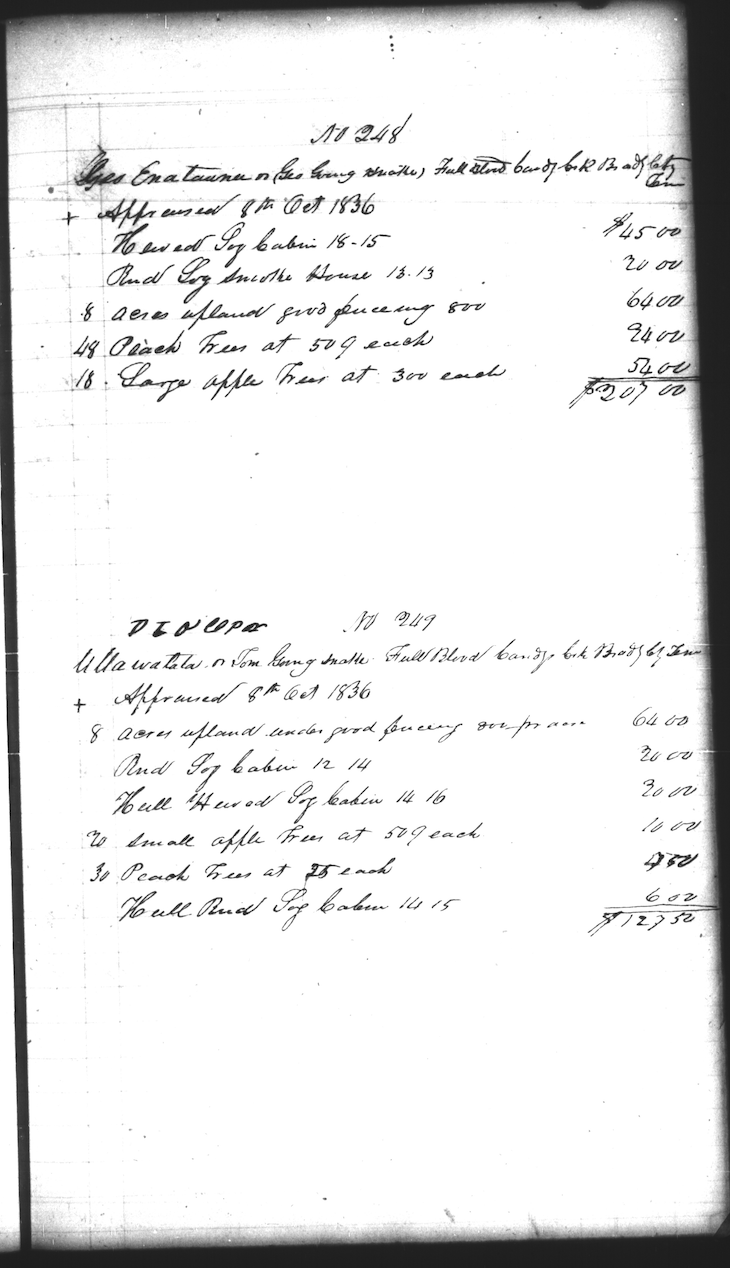 No 248
Geo Enatanna or (Geo Going Snake) Full Blood Candy Crk Brady Cty
Ten
+ Appraised 8th Oct 1836
Hewed Log Cabin 18-15 $45 00
Rnd Log Smoke House 13.13 20 00
8 acres upland good fenceing 800 64 00
48 Peach Trees at 50 ¢ each 24 00
18 Large apple Trees at 300 each 54 00
$207 00
No 249
Ullawatata or Tom Going Snake Full Blood Candy Crk Brady Cty Tenn
+ Appraised 8th Oct 1836
8 acres upland under good fenceing 800 pr acre 64 00
Rnd Log Cabin 12 14 20 00
Hull Hewed Log Cabin 14 16 20 00
20 small apple Trees at 50 ¢ each 10 00
30 Peach Trees at 25 each 7 50
Hull Rnd Log Cabin 14 15 6 00
$127 50